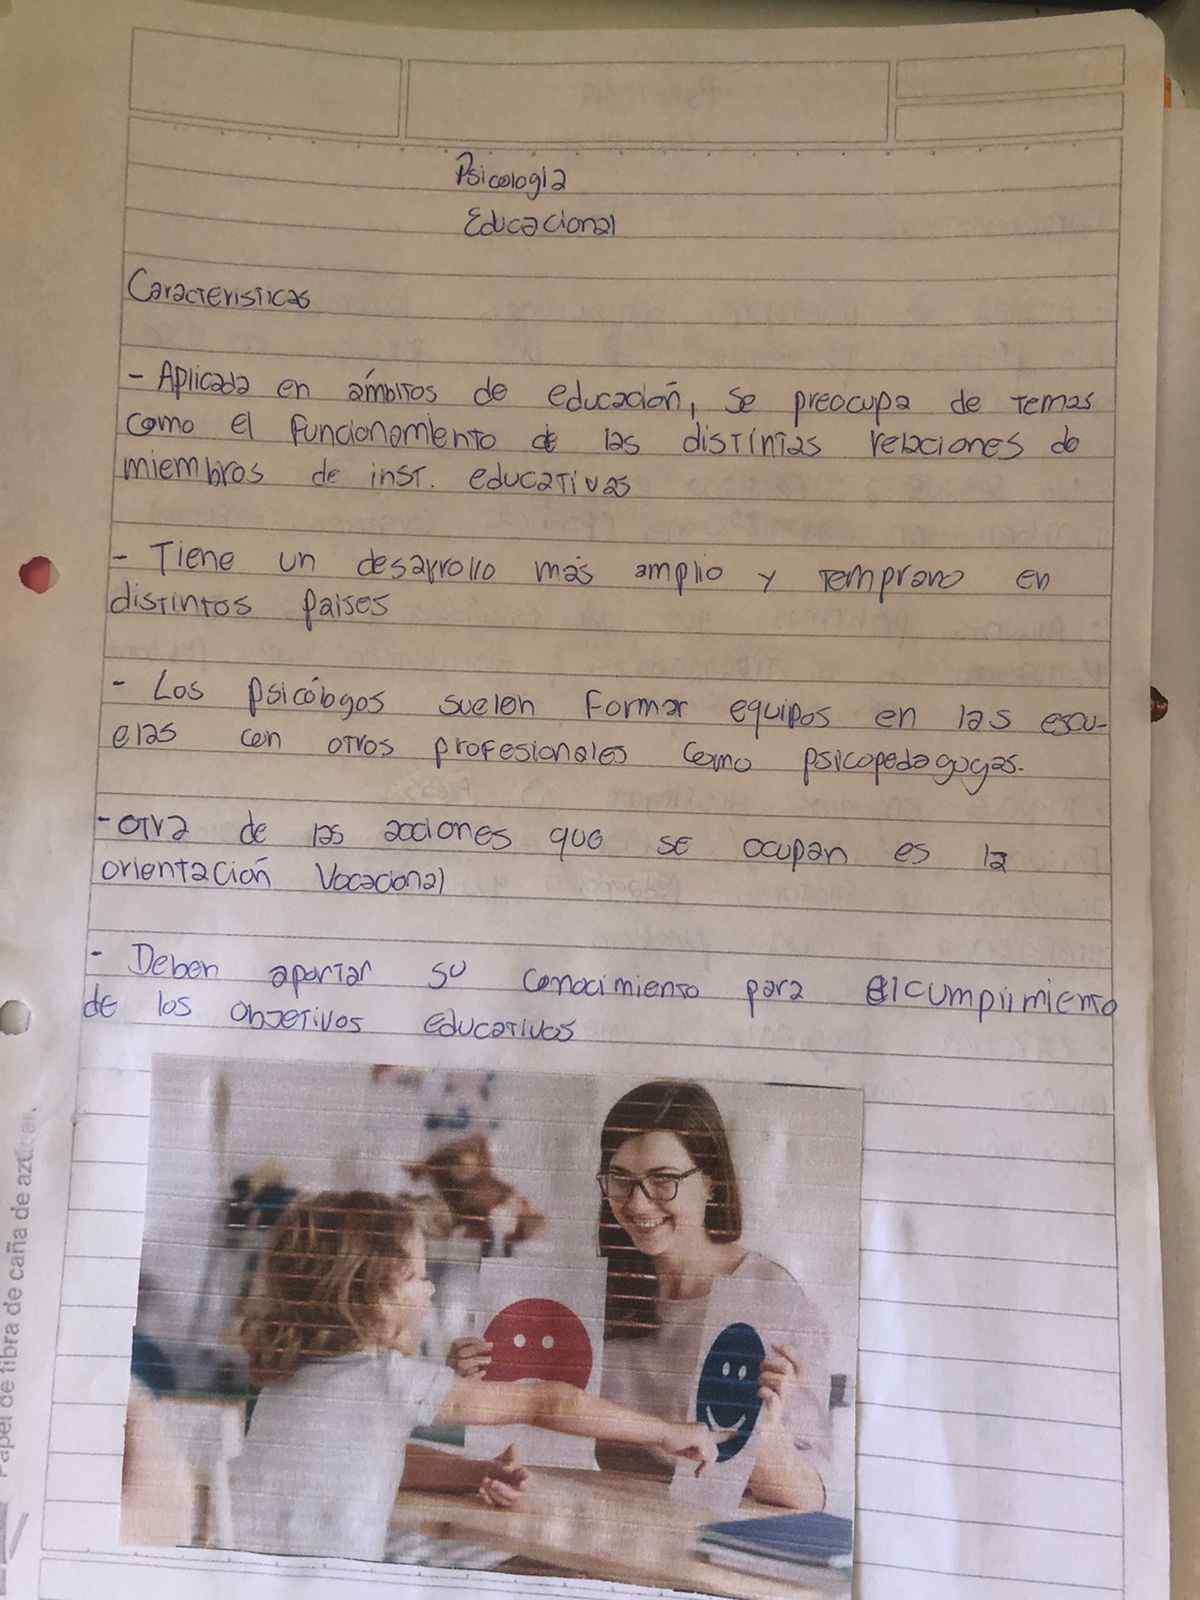 Psicologia
Educacional
Caracteristicas
- Aplicada en ámbitos de educación, se preocupa de temas
como el funcionamiento de las distintas relaciones de
miembros de inst. educativas
- Tiene un desarrollo más amplio y temprano en
distintos paises
- Los psicólogos suelen formar equipos en las escu-
elas con otros profesionales como psicopedagogas.
- otra de las acciones que se ocupan es la
orientación Vocacional
- Deben aportar su conocimiento para el cumplimiento
de los objetivos educativos
Papel de fibra de caña de azúcar.